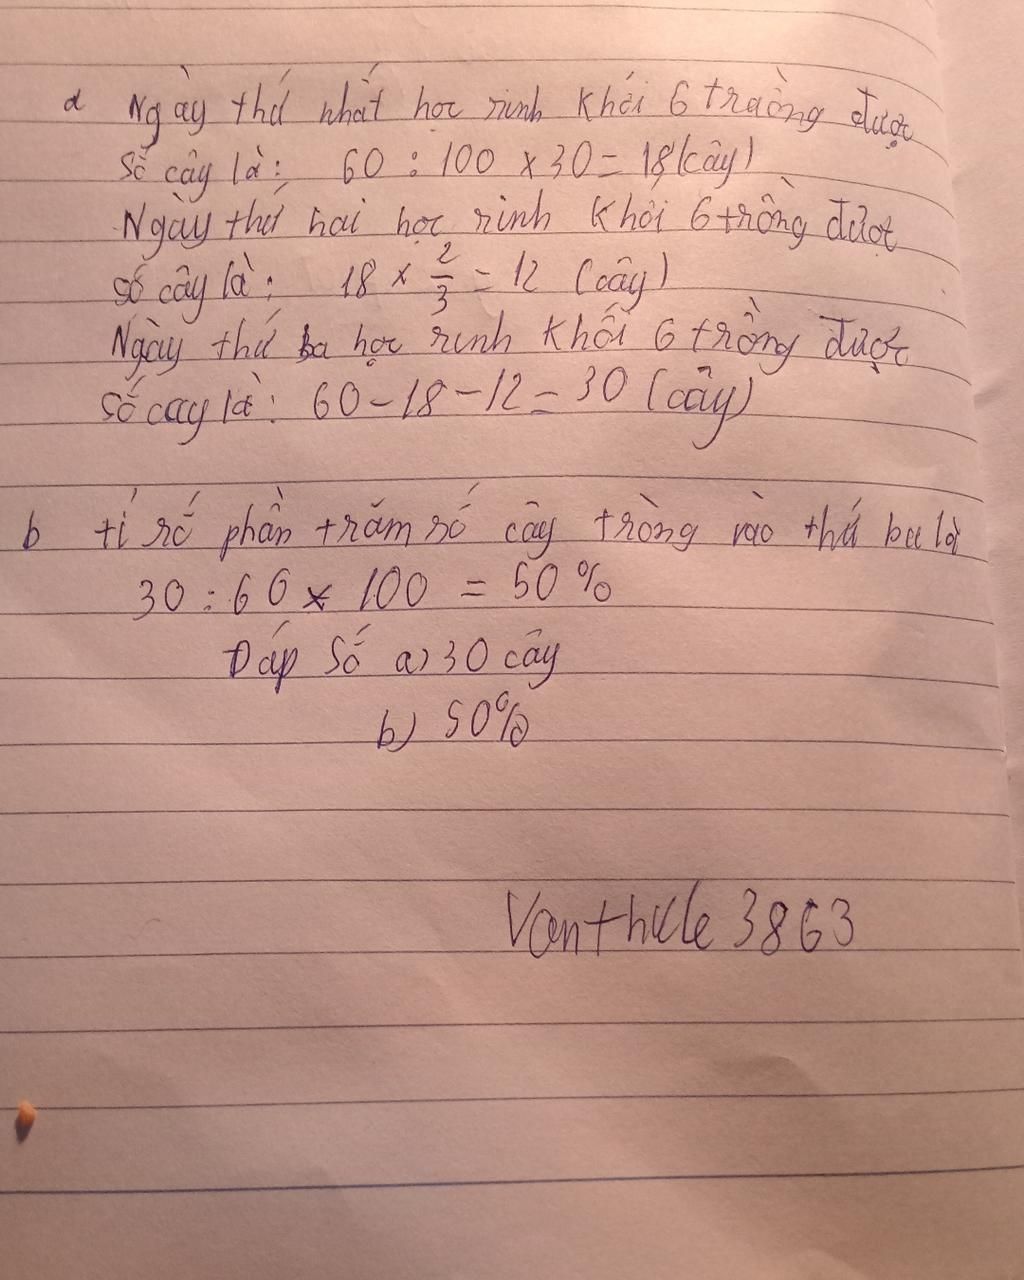 a Ngày thứ nhất học sinh khối 6 trồng được
Số cây là: 60 : 100 x 30 = 18 (cây)
Ngày thứ hai học sinh khối 6 trồng được
số cây là: 18 x 2/3 = 12 (cây)
Ngày thứ ba học sinh khối 6 trồng được
Số cay là: 60 - 18 - 12 = 30 (cây)
b tỉ số phần trăm số cây tròng vào thứ ba là
30 : 60 x 100 = 50 %
Đáp Số a) 30 cây
b) 50%
Vanthule 3863